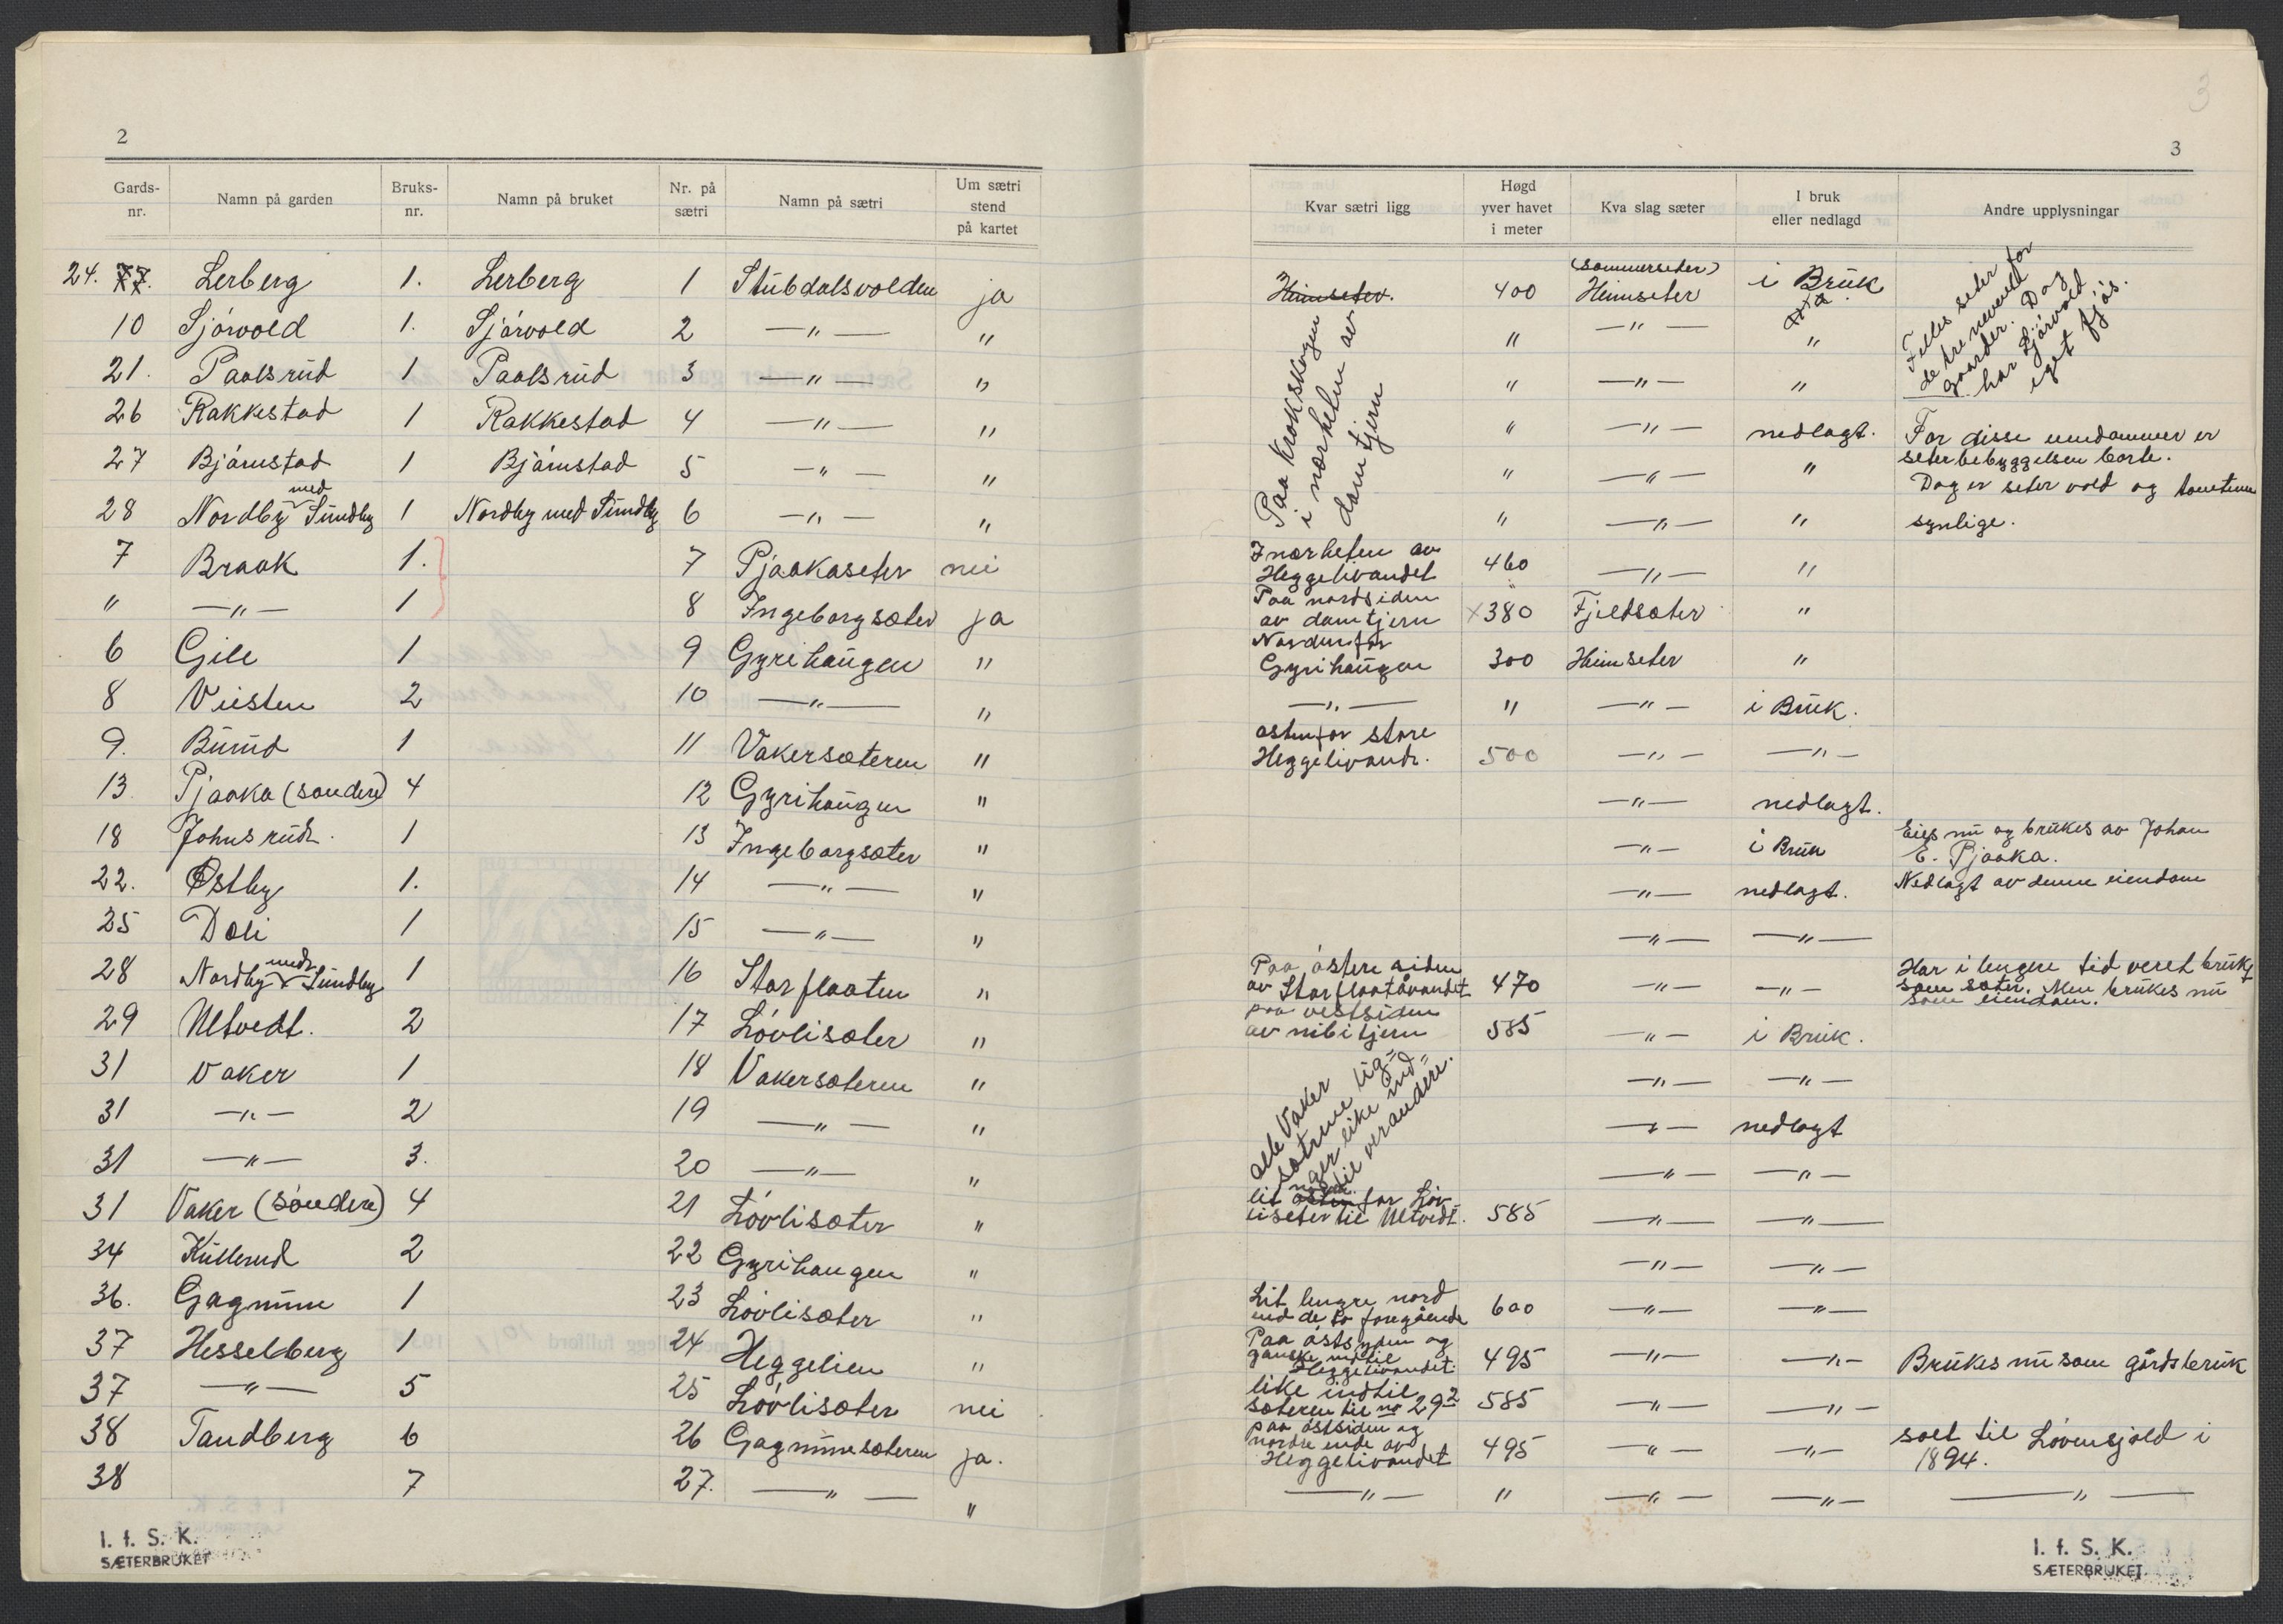 2
Gards-nr. Namn på garden Bruks-nr. Namn på bruket Nr. på sætri Namn på sætri Um sætri stend på kartet
24. Lerberg 1. Lerberg 1 Stubdalsvolden ja
10 Sjørvold 1. Sjørvold 2 —"— "
21. Paalsrud 1 Paalsrud 3 —"— "
26 Rakkestad 1 Rakkestad 4 —"— "
27 Bjørnstad 1 Bjørnstad 5 —"— "
28 Nordby med Sundby 1 Nordby med Sundby 6 —"— "
7 Braak 1. 7 Pjaakaseter nei
" —"— 1 8 Ingeborgsæter ja
6 Gile 1 9 Gyrihaugen "
8 Viesten 2 10 —"— "
9. Burud 1 11 Vakersæteren "
13. Pjaaka (søndere) 4 12 Gyrihaugen "
18 Johnsrud. 1 13 Ingeborgsæter "
22. Østby 1. 14 —"— "
25 Dæli 1 15 —"— "
28 Nordby med Sundby 1 16 Storflaaten "
29 Ultvedt. 2 17 Løvlisæter "
31 Vaker 1 18 Vakersæteren "
31 —"— 2 19 —"— "
31 —"— 3. 20 —"— "
31 Vaker (søndere) 4 21 Løvlisæter "
34 Kullerud 2 22 Gyrihaugen "
36. Gagnum 1 23 Løvlisæter "
37 Hesselberg 1 24 Heggelien "
37 —"— 5 25 Løvlisæter nei
38 Tandberg 6 26 Gagnumsæteren ja.
38 7 27. —"— "
I. f. S. K.
SÆTERBRUKET
3
3
Kvar sætri ligg Høgd yver havet i meter Kva slag sæter I bruk eller nedlagd Andre upplysningar
Heimseter. 400 (sommerseter) Heimseter i Bruk
Paa Krokskogen i nærheten av damtjern
" —"— "
" —"— "
Felles seter for de tre nevnte gaarder. Dog har Sjørvold eget fjøs.
" —"— nedlagt. For disse eiendommer er
" —"— " seterbebyggelsen borte.
Dog er seter vold og tomtene
" —"— " synlige.
I nærheten av Heggelivandet 460 —"— "
Paa nordsiden av damtjern x380 Fjeldsæter "
Nordenfor Gyrihaugen 300 Heimseter "
—"— " —"— i Bruk.
østenfor store Heggelivand. 500 —"— —"—
—"— nedlagt.
—"— i Bruk Eies nu og brukes av Johan E. Pjaaka.
—"— nedlagt. Nedlagt av denne eiendom
—"— —"—
Paa østere siden av Storflaatåvandet 470 —"— —"— Har i lengre tid veret brukt som sæter. Men brukes nu som eiendom.
paa vestsiden av nibitjern 585 —"— i Bruk.
alle Vaker sætrene lig= nger like ind= til verandere.
—"— —"—
—"— nedlagt
—"— —"—
lit østenfor Løvliseter til Ultvedt. 585 —"— —"—
—"— —"—
Lit lengre nord end de to foregående 600 —"— —"—
Paa østsyden og ganske indtil Heggelivandet. 495 —"— —"— Brukes nu som gårdsbruk
like indtil sæteren til no 29² 585 —"— —"—
paa østsiden og nordre ende av Heggelivandet 495 —"— —"— solt til Løvensjold i 1894.
—"— " —"— —"— —"—
I. f. S. K.
SÆTERBRUKET